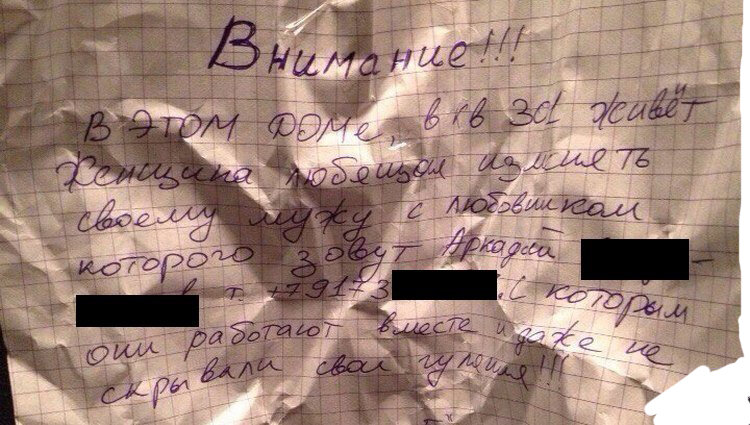 Внимание!!!
В ЭТОМ ДОМе, в кв 31 живёт
Женщина любящая изменять
своему мужу с любовником
которого зовут Аркадий
т. +79173 , с которым
они работают вместе и даже не
скрывали свои гуляния!!!